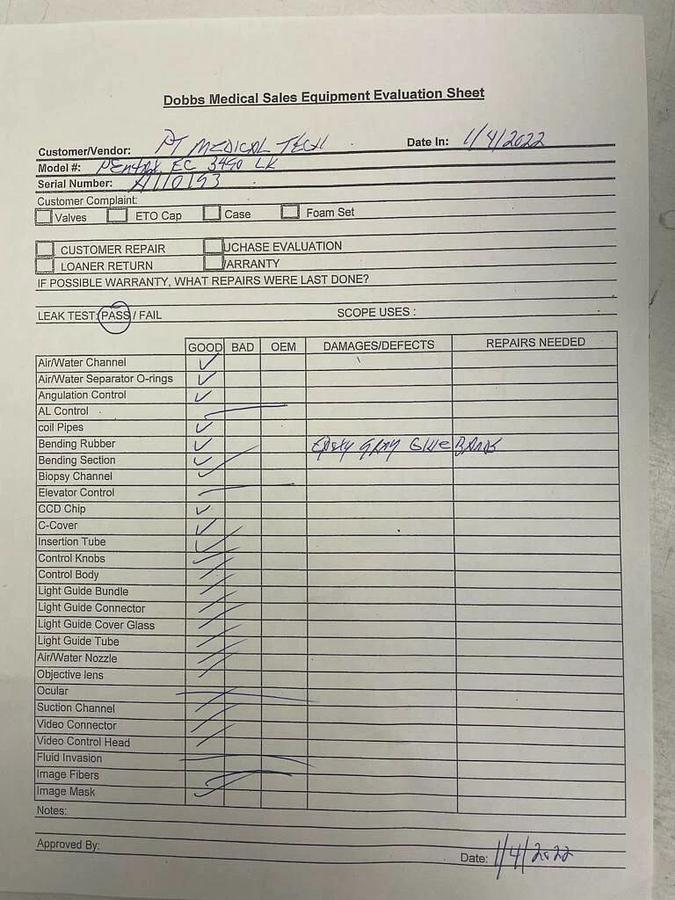 Dobbs Medical Sales Equipment Evaluation Sheet
Customer/Vendor: PT MEDICAL TECH Date In: 1/4/2022
Model #: PEntax EC 3490 LK
Serial Number: A110193
Customer Complaint:
Valves ETO Cap Case Foam Set
CUSTOMER REPAIR UCHASE EVALUATION
LOANER RETURN ARRANTY
IF POSSIBLE WARRANTY, WHAT REPAIRS WERE LAST DONE?
LEAK TEST: PASS / FAIL SCOPE USES :
GOOD BAD OEM DAMAGES/DEFECTS REPAIRS NEEDED
Air/Water Channel
Air/Water Separator O-rings
Angulation Control
AL Control
coil Pipes
Bending Rubber Epoxy Gray Glue Bands
Bending Section
Biopsy Channel
Elevator Control
CCD Chip
C-Cover
Insertion Tube
Control Knobs
Control Body
Light Guide Bundle
Light Guide Connector
Light Guide Cover Glass
Light Guide Tube
Air/Water Nozzle
Objective lens
Ocular
Suction Channel
Video Connector
Video Control Head
Fluid Invasion
Image Fibers
Image Mask
Notes:
Approved By:
Date: 1/4/2022